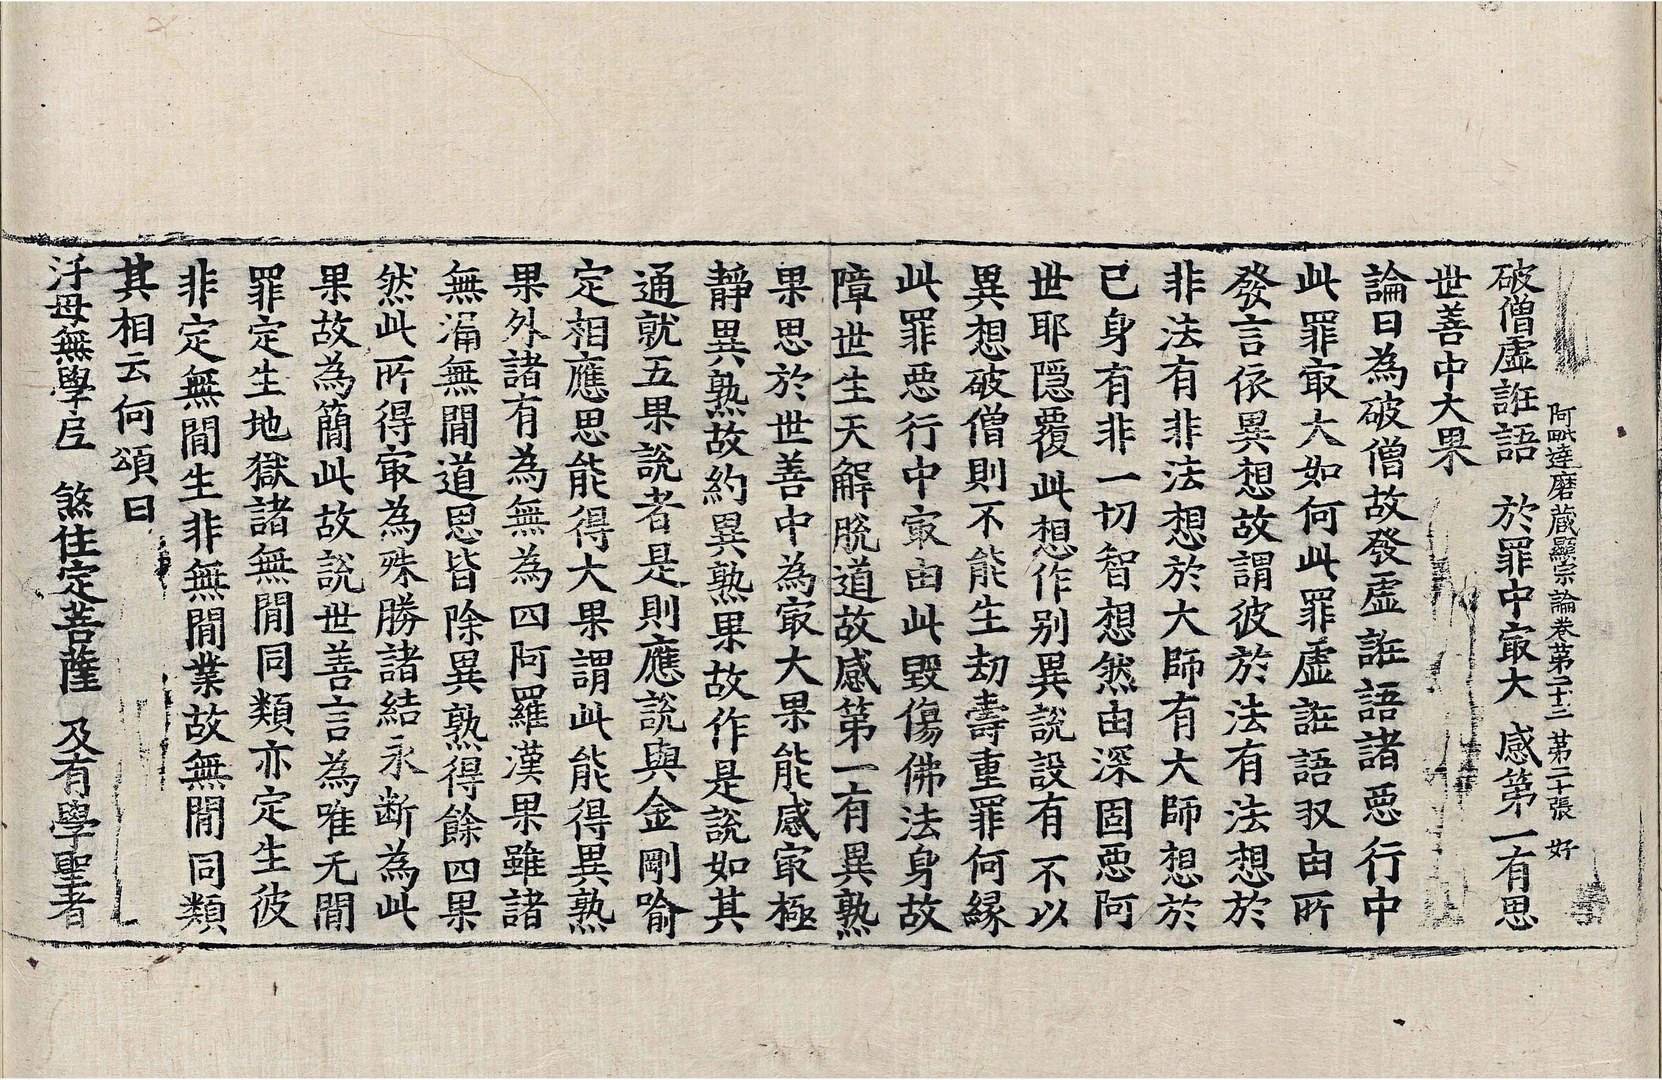 阿毗達磨藏顯宗論卷第二十三 第二十張 好
破僧虛誑語 於罪中㝡大 感第一有思
世善中大果
論曰為破僧故發虛誑語諸惡行中
此罪㝡大如何此罪虛誑語収由所
發言依異想故謂彼於法有法想於
非法有非法想於大師有大師想於
已身有非一切智想然由深固惡阿
世耶隱覆此想作別異說設有不以
異想破僧則不能生劫壽重罪何緣
此罪惡行中㝡由此毀傷佛法身故
障世生天解脫道故感第一有異熟
果思於世善中為㝡大果能感㝡極
靜異熟故約異熟果故作是說如其
通就五果說者是則應說與金剛喻
定相應思能得大果謂此能得異熟
果外諸有為無為四阿羅漢果雖諸
無漏無閒道思皆除異熟得餘四果
然此所得㝡為殊勝諸結永斷為此
果故為簡此故說世善言為唯无閒
罪定生地獄諸無閒同類亦定生彼
非定無閒生非無閒業故無閒同類
其相云何頌曰
汙母無學尼 煞住定菩薩 及有學聖者